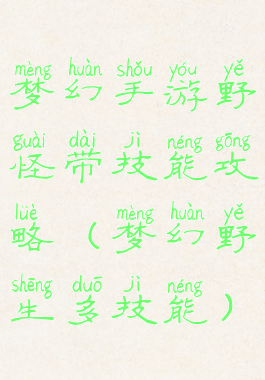 mèng huàn shǒu yóu yě
梦幻手游野
guài dài jì néng gōng
怪带技能攻
lüè mèng huàn yě
略（梦幻野
shēng duō jì néng
生多技能）